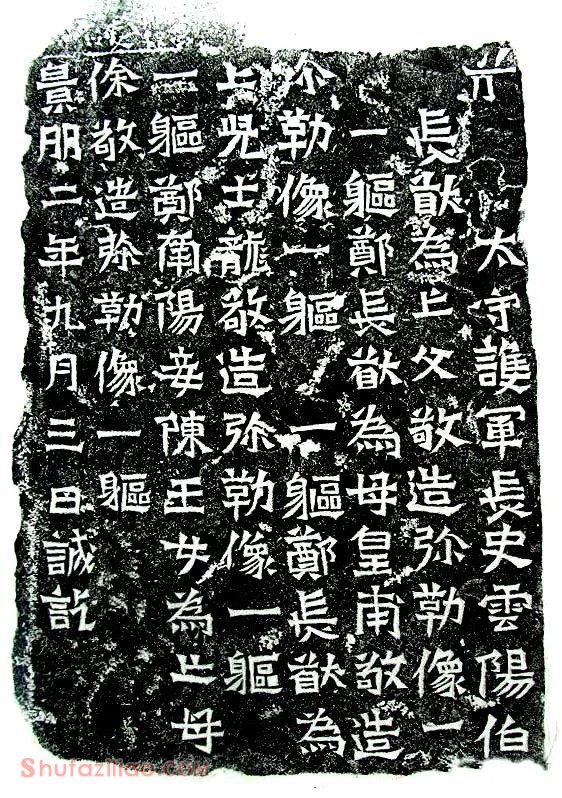 太守護軍長史雲陽伯
長猷為亡父敬造弥勒像一
一軀鄭長猷為母皇甫敬造
弥勒像一軀一軀鄭長猷為
亡兒士龍敬造弥勒像一軀
一軀鄭南陽妾陳玉女為亡母
徐敬造弥勒像一軀
景明二年九月三日誡訖
Shufaziliao.COM